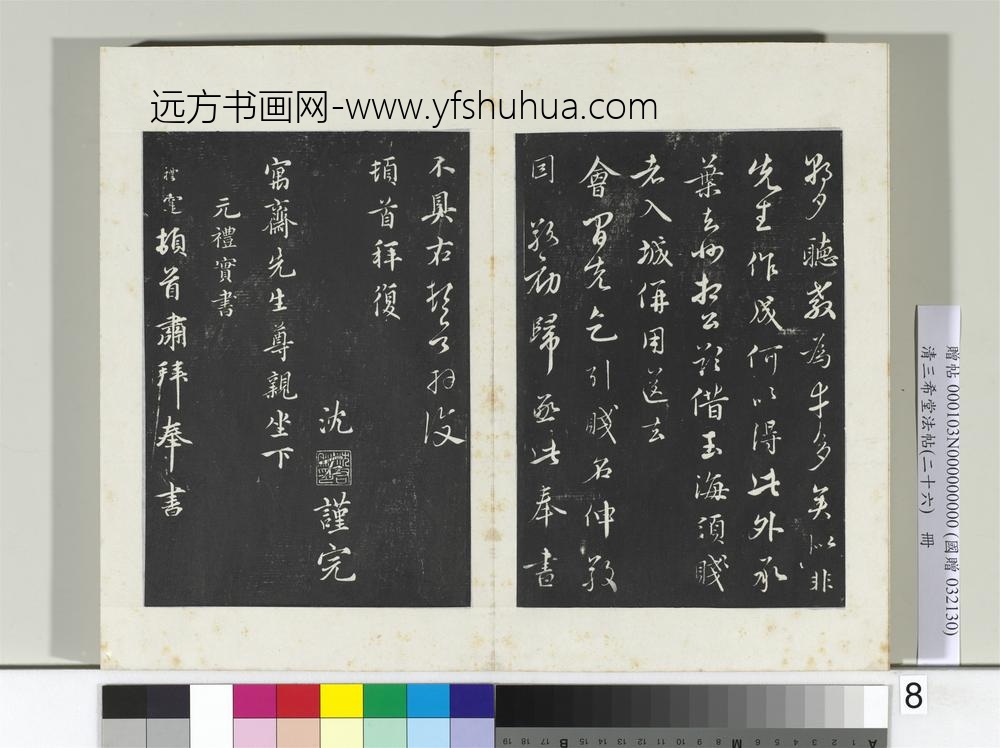 远方书画网-www.yfshuhua.com
聽教為幸多矣以非
先生作成何以得此外承
葉去妙相公欲借玉海須賤
者入城併用送去
會間先乞引賤名仲敬
因敬初歸亟此奉書
不具右謹
頓首拜復
沈
謹完
寓齋先生尊親坐下
元禮實書
頓首肅拜奉書
贈帖 000103N000000000 (國贈 032130)
清三希堂法帖(二十六) 冊
8